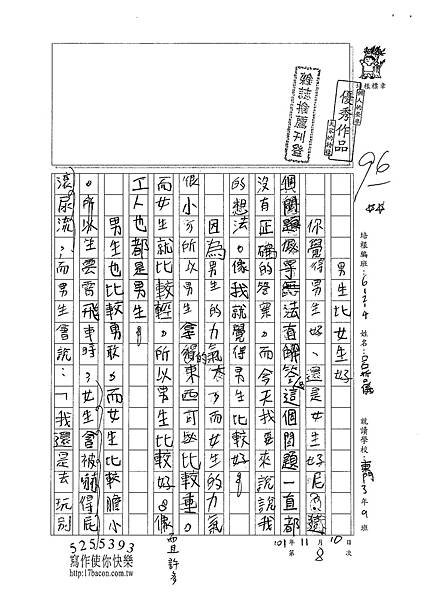 培根標章
個人的榮譽
優秀作品
大家的特優
雜誌推薦刊登
96
培根編班:6
姓名:
就讀學校: 3年9班
101年11月8日 第10次
男生比女生好
你覺得男生好、還是女生好呢?
個問題 無法直 這個問題一直都
沒有正確的答案。而今天我要來說說我
的想法。像我就覺得男生比較好。
因為男生的力氣大,而女生的力氣
很小,所以男生拿得的東西可以比較重。
而女生就比較輕。所以男生比較好。像
而且許多
工人也都是男生。
男生也比較勇敢,而女生比較膽小
。所以坐雲霄飛車時,女生會被嚇得屁
滾尿流,而男生會說:「我還是去玩別
5255393
寫作使你快樂
http://17bacon.com.tw/